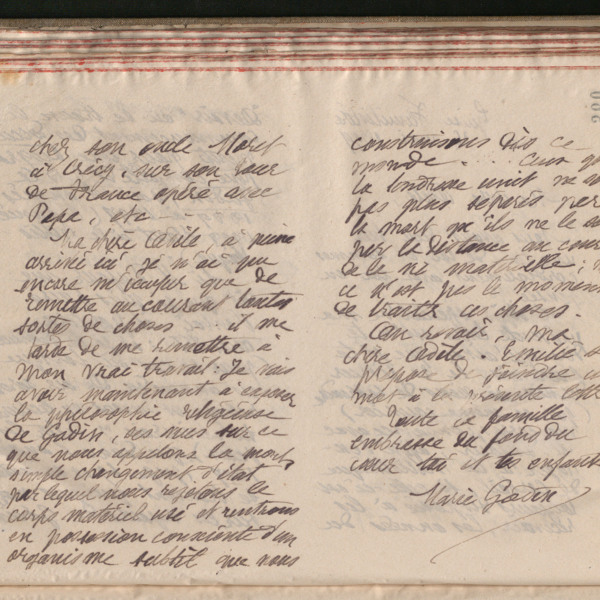 chez son oncle Moret
à Crécy, sur son tour
de France opéré avec
Papa, etc - -
Ma chère Cécile, à peine
arrivée ici je n'ai pu
encore m'occuper que de
remettre au courant toutes
sortes de choses .. il me
tarde de me remettre à
mon vrai travail: Je vais
avoir maintenant à exposer
la philosophie religieuse
de Godin, ses vues sur ce
que nous appelons la mort,
simple changement d'état
par lequel nous rejetons le
corps matériel usé et rentrons
en possession consciente d'un
organisme subtil que nous
construisons dès ce
monde . . . . Ceux qu
la tendresse unit ne
pas plus séparés par
la mort qu'ils ne le
par la distance au cours
de la vie matérielle;
ce n'est pas le moment
de traiter ces choses.
Au revoir, ma
chère Cécile. Emilie
propose de joindre
mot à la présente
Toute la famille
embrasse du fond du
cœur toi et tes enfants
Marie Godin
200